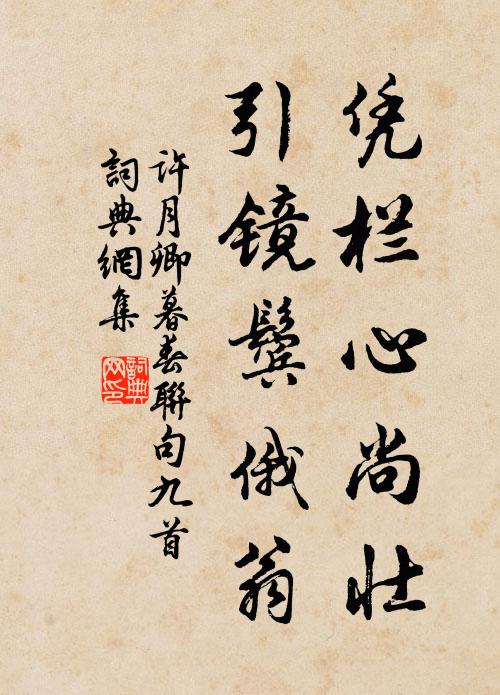 凭栏心尚壮
引镜鬓俄翁
許月卿暮春聯句九首
詞典網集
詞典网印